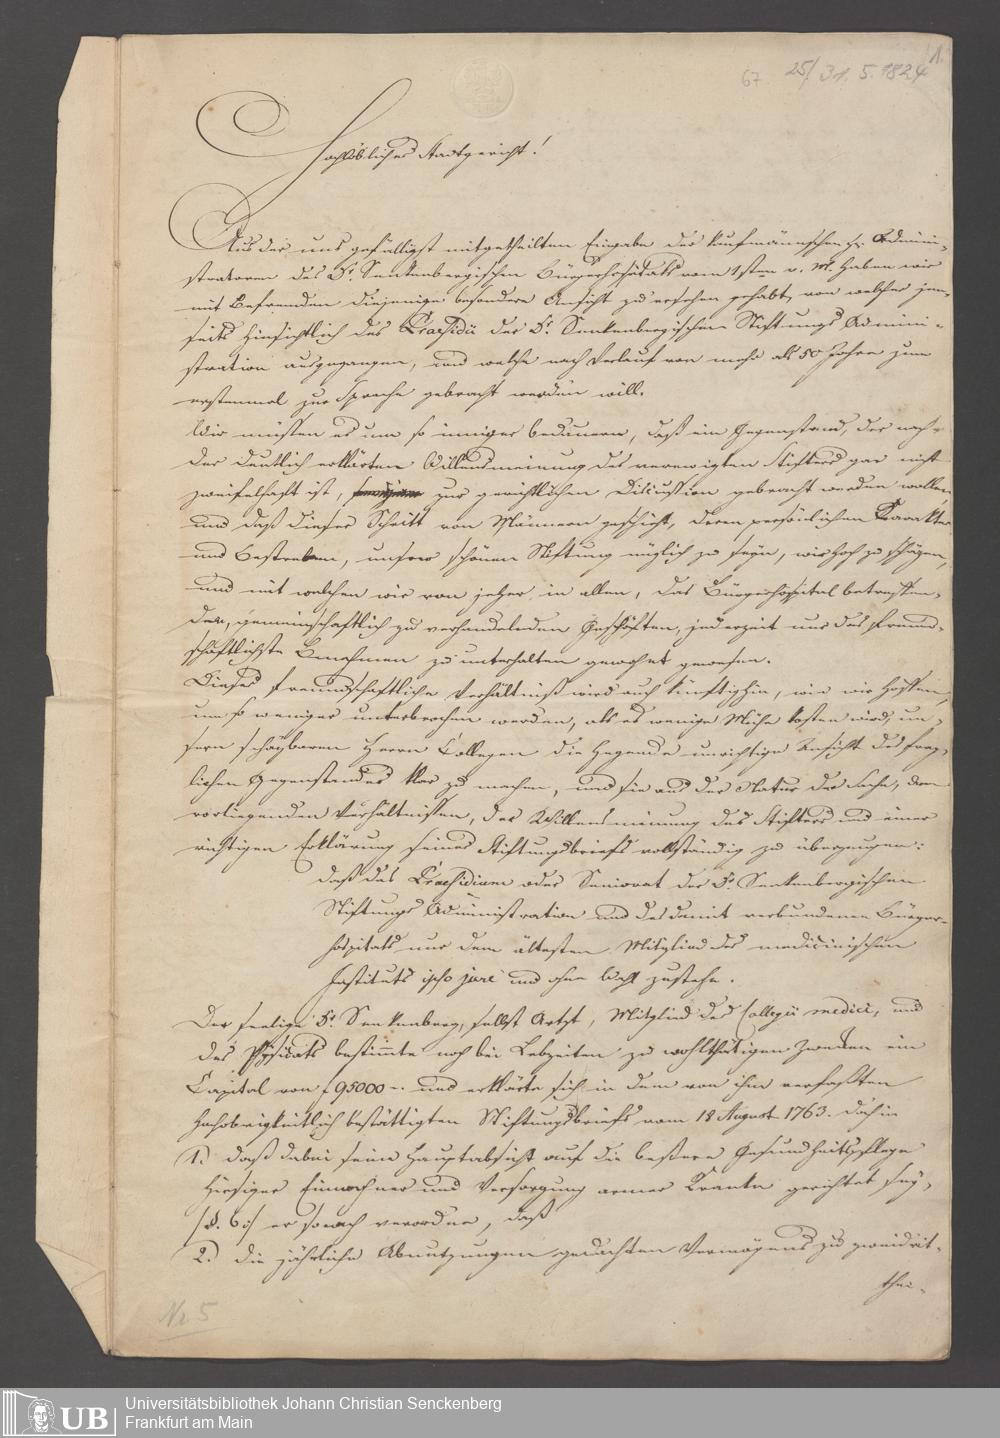 1.
67 25/31. 5. 1824
Hochlöbliches Stadtgericht!
Aus der uns gefälligst mitgetheilten Eingabe der kaufmännischen Hr. Admini-
stratoren des Dr. Senkenbergischen Bürgerhospitals vom 1sten v. M. haben wir
mit Befremden diejenige besondere Ansicht zu ersehen gehabt, von welcher jen-
seits hinsichtlich des Praesidii der Dr. Senkenbergischen Stiftungs Admini-
stration ausgegangen, und welche nach Verlauf von mehr als 50 Jahren zum
erstenmal zur Sprache gebracht werden will.
Wir müssen es um so inniger bedauern, daß ein Gegenstand, der nach
der deutlich erklärten Willensmeinung des verewigten Stifters gar nicht
zweifelhaft ist, zur gerichtlichen Discussion gebracht werden wollen,
und daß dieser Schritt von Männern geschieht, deren persönlichen Karakter
und Bestreben, unsrer schönen Stiftung nüzlich zu seyn, wir hoch zu schäzen,
und mit welchen wir von jeher in allen, das Bürgerhospital betreffen-
den, gemeinschaftlich zu verhandelnden Geschäften, jederzeit nur das freund-
schaftlichste Benehmen zu unterhalten gewohnt gewesen.
Dieses freundschaftliche Verhältniß wird auch künftighin, wie wir hoffen,
um so weniger unterbrochen werden, als es wenige Mühe kosten wird, un-
sern schäzbaren Herrn Collegen die hegende unrichtige Ansicht des frag-
lichen Gegenstandes klar zu machen, und sie aus der Natur der Sache, dem
vorliegenden Verhältnissen, der Willensmeinung des Stifters und einer
richtigen Erklärung seines Stiftungsbriefs vollständig zu überzeugen:
daß das Praesidium oder Seniorat der Dr. Senkenbergischen
Stiftungs Administration und des damit verbundenen Bürger-
hospitals nur dem ältesten Mitglied des medicinischen
Instituts ipso jure und ohne Wahl zustehe.
Der seelige Dr. Senkenberg, selbst Artzt, Mitglied des Collegii medici, und
des Physicats bestimmte noch bei Lebzeiten zu wohlthätigen Zwecken ein
Capital von f 95000 -. und erklärte sich in dem von ihm verfaßten
hochobrigkeitlich bestättigten Stiftungsbriefs vom 18 August 1763. dahin
1.) daß dabei seine Hauptabsicht auf die beßere Gesundheitspflege
hiesiger Einwohner und Versorgung armer Kranken gerichtet sey,
/:§. 6:/ er sonach verordne, daß
2.) die jährliche Abnutzungen gedachten Vermögens zu zweidrit-
thei-
Nr 5
UB
Universitätsbibliothek Johann Christian Senckenberg
Frankfurt am Main